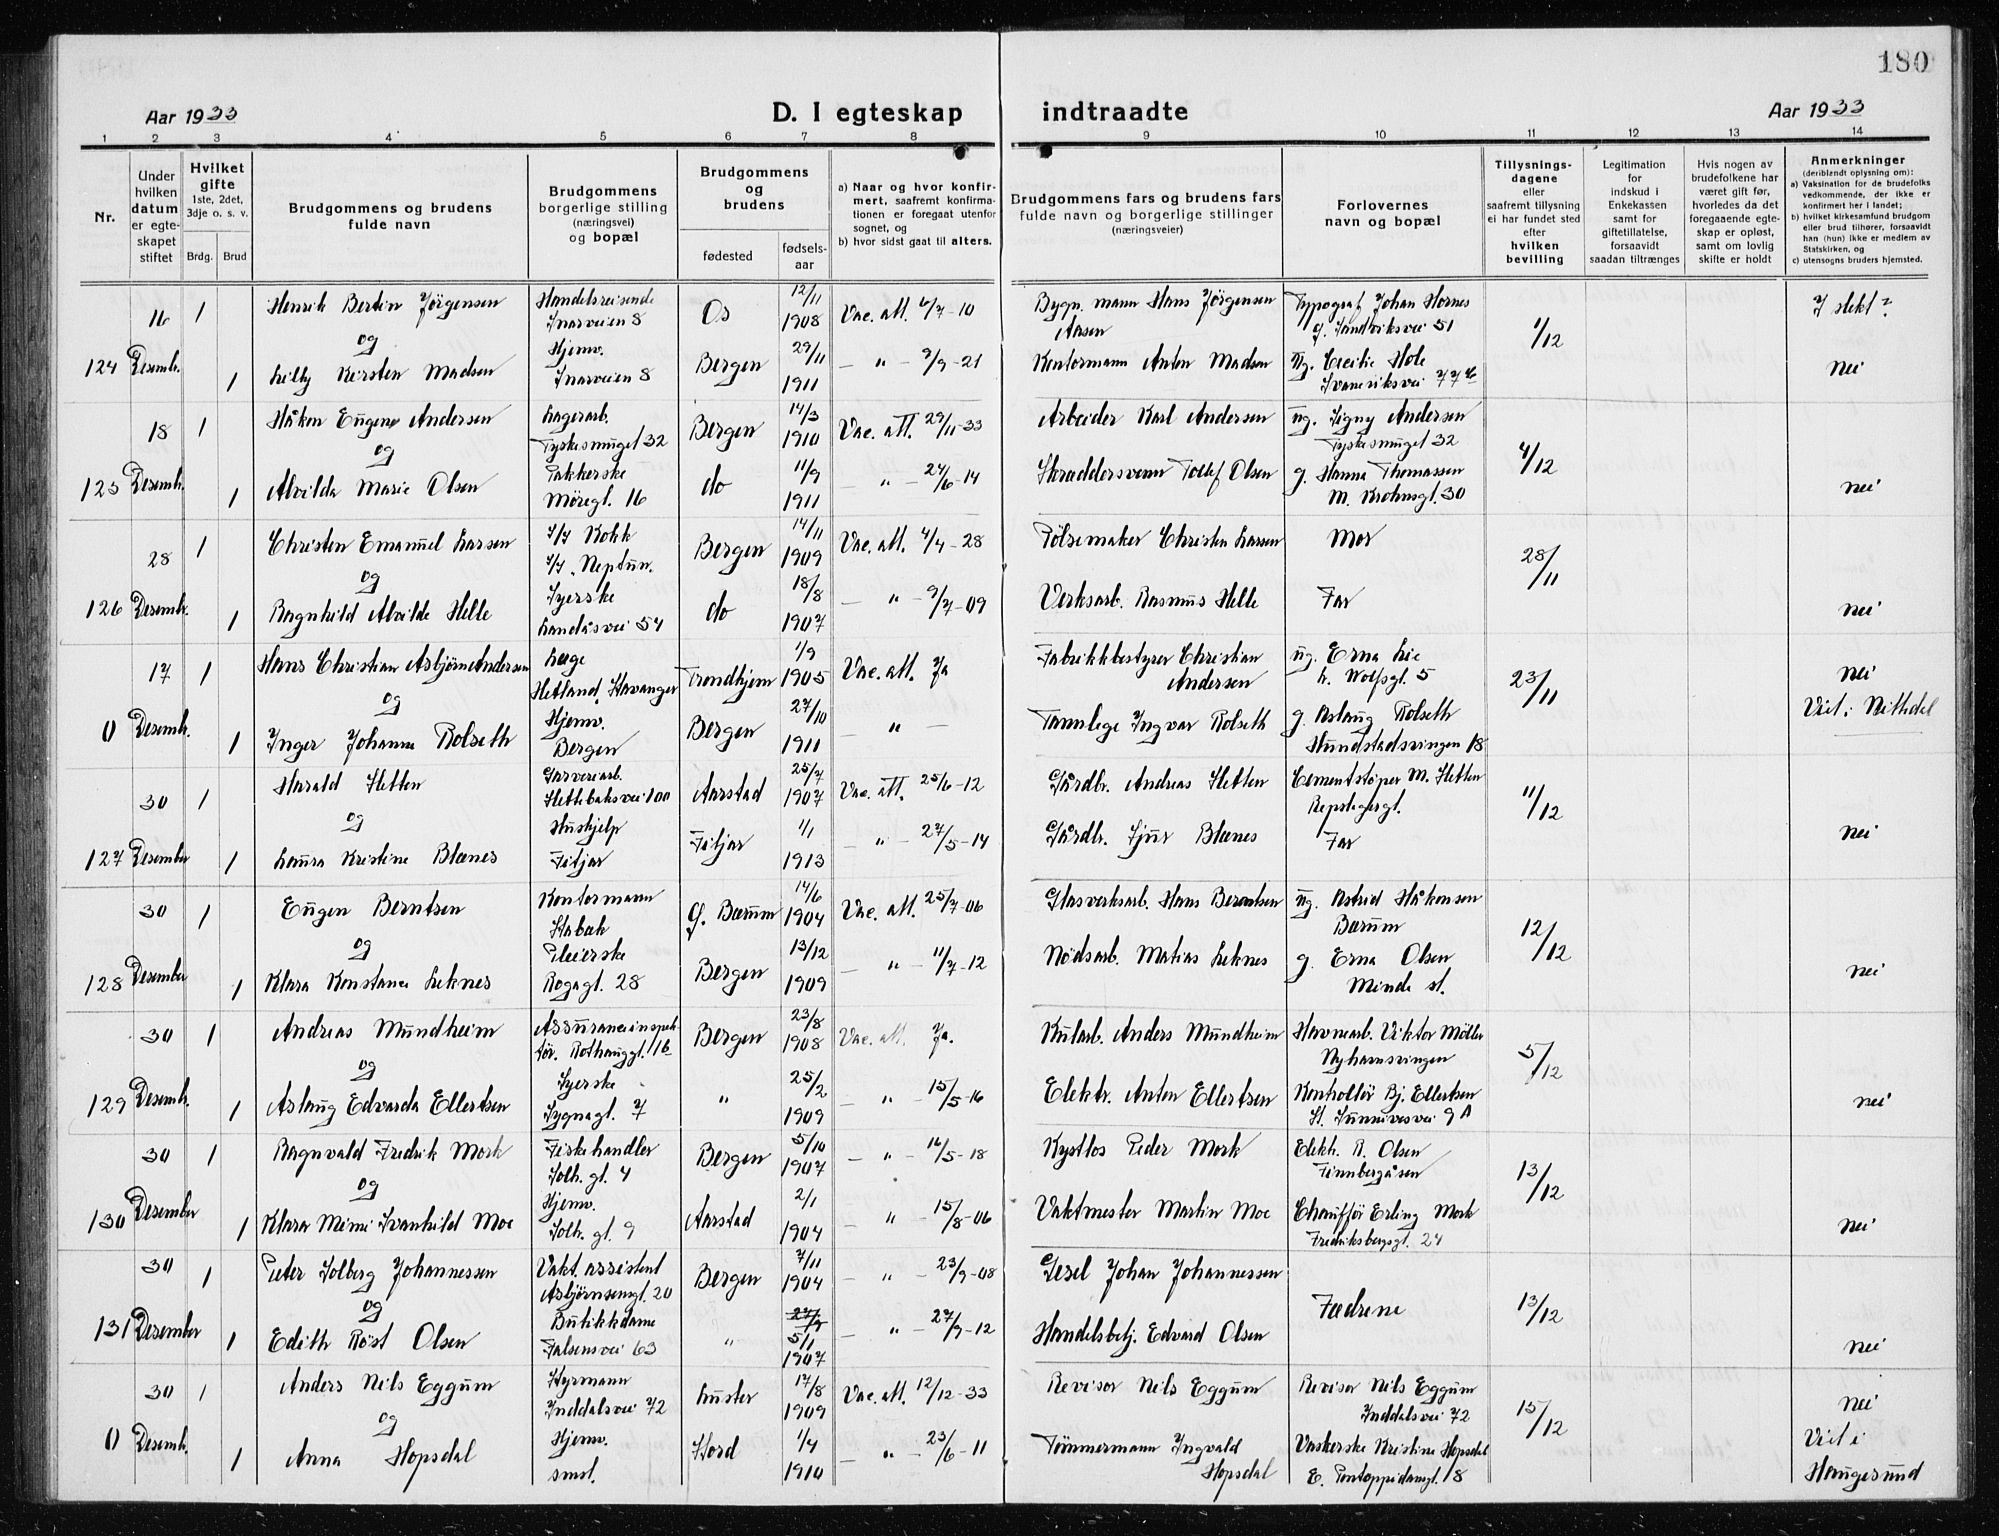 180
Aar 1933
D. I egteskap indtraadte
Aar 1933
1 2 3 4 5 6 7 8 9 10 11 12 13 14
Nr.
Under hvilken datum er egteskapet stiftet
Hvilket gifte 1ste, 2det, 3dje o. s. v.
Brdg. Brud
Brudgommens og brudens fulde navn
Brudgommens borgerlige stilling (næringsvei) og bopæl
Brudgommens og brudens
fødested
fødselsaar
a) Naar og hvor konfirmert, saafremt konfirmationen er foregaat utenfor sognet, og
b) hvor sidst gaat til alters.
Brudgommens fars og brudens fars fulde navn og borgerlige stillinger (næringsveier)
Forlovernes navn og bopæl
Tillysningsdagene eller saafremt tillysning ei har fundet sted efter hvilken bevilling
Legitimation for indskud i Enkekassen samt for giftetillatelse, forsaavidt saadan tiltrænges
Hvis nogen av brudefolkene har været gift før, hvorledes da det foregaaende egteskap er opløst, samt om lovlig skifte er holdt
Anmerkninger (deriblendt oplysning om):
a) Vaksination for de brudefolks vedkommende, der ikke er konfirmert her i landet;
b) hvilket kirkesamfund brudgom eller brud tilhører, forsaavidt han (hun) ikke er medlem av Statskirken, og
c) utensogns bruders hjemsted.
16 1 Henrik Bertin Jörgensen Handelsreisende Ivarsveien 8 Os 12/11 1908 Vac. att. 6/7-10 Bygn. mann Hans Jörgensen Aasen Typograf Johan Hornes g. Sandviksvei 51 1/12 I slekt?
og
124 Desemb. 1 Lilly Kirsten Madsen Hjemv. Ivarsveien 8 Bergen 29/11 1911 — " — 9/9-21 Kontormann Anton Madsen Ug. Cecilie Hole nei
18 1 Håkon Eugene Andersen Lagerarb. Tyskesmuget 32 Bergen 14/3 1910 Vac. att. 29/11-33 Arbeider Karl Andersen ug. Signy Andersen Tyskesmuget 32 4/12
og
125 Desemb. 1 Alvilda Marie Olsen Pakkerske Möregt. 16 do 11/9 1911 — " — 24/6-14 Skraddersvenn Tollef Olsen g. Hanna Thomassen M. Krohnsgt. 30 nei
28 1 Christen Emanuel Larsen S/S Kokk S/S "Neptun" Bergen 14/11 1909 Vac. att. 4/4-28 Pölsemaker Christen Larsen Mor 28/11
og
126 Desemb. 1 Ragnhild Alvilde Helle Syerske Landåsvei 54 do 18/8 1907 — " — 9/7-09 Verksarb. Rasmus Helle Far nei
17 1 Hans Christian Asbjörn Andersen Læge Hetland, Stavanger Trondhjem 1/9 1905 Vac. att. Ja Fabrikkbestyrer Christian Andersen ug. Erna Lie 23/11 nei
og
0 Desemb. 1 Inger Johanne Rolseth Hjemv. Bergen Bergen 27/10 1911 " — Tannlege Ingvar Rolseth g. Aslaug Rolseth Hundstadsvingen 18 Viet i Nittedal
30 1 Harald Sletten Garveriarb. Slettebaksvei 100 Aarstad 25/7 1907 Vac. att. 25/6-12 Gårdbr. Andreas Sletten Cementstöper M. Sletten 11/12
og
127 Desember 1 Laura Kristine Blænes Hushjelp Fitjar Fitjar 1/1 1913 " — 27/5-14 Gårdbr. Sjur Blænes Far nei
30 1 Eugen Berntsen Kontormann Stabæk Ø. Bærum 14/6 1904 Vac. att. 25/7-06 Glasverksarb. Hans Berentsen ug. Astrid Håkonsen Bærum 12/12
og
128 Desember 1 Klara Konstance Leknes Pleierske Rogagt. 28 Bergen 13/12 1909 — " — 11/7-12 Nödsarb. Matias Leknes g. Erna Olsen Minde st. nei
30 1 Andreas Mundheim Assuranceinspektör. Rothauggt. 16 Bergen 23/8 1908 Vac. att. Ja. Kularb. Anders Mundheim Havnearb. Viktor Möller Nyhavnsvingen 5/12
og
129 Desemb. 1 Aslaug Edvarda Ellertsen Syerske Sygnagt. 7 " 25/2 1909 — " — 15/5-16 Elektr. Anton Ellertsen Kontrollör Bj. Ellertsen St. Sunnivesvei 9 A nei
30 1 Ragnvald Fredrik Mork Fiskehandler Solh. gt. 4 Bergen 5/10 1907 — " — 16/5-18 Kystlos Peder Mork Elektr. R. Olsen Finnbergåsen 13/12
og
130 Desember 1 Klara Mimi Svanhild Moe Hjemv. Solh. gt. 9 Aarstad 2/1 1904 — " — 15/8-06 Vaktmester Martin Moe Chauffør Erling Mork Fredriksbergsgt. 24 nei
30 1 Peter Solberg Johannessen Vakt. assistent Asbjörnsensgt. 20 Bergen 7/11 1904 — " — 23/9-08 Gesel Johan Johannessen Fædrene 13/12
og
131 Desember 1 Edith Röst Olsen Butikkdame Falsensvei 63 " 27/9 5/1 1907 — " — 27/9-12 Handelsbetj. Edvard Olsen nei
30 1 Anders Nils Eggum Styrmann Inddalsvei 72 Luster 17/8 1909 Vac. att. 12/12-33 Revisor Nils Eggum Revisor Nils Eggum Inddalsvei 72 15/12 nei
og
0 Desemb. 1 Anna Hopsdal Hjemv. smst. Stord 1/4 1910 — " — 23/6-11 Tömmermann Ingvald Hopsdal Vaskerske Kristine Hopsdal E. Pontoppidansgt. 18 Viet i Haugesund